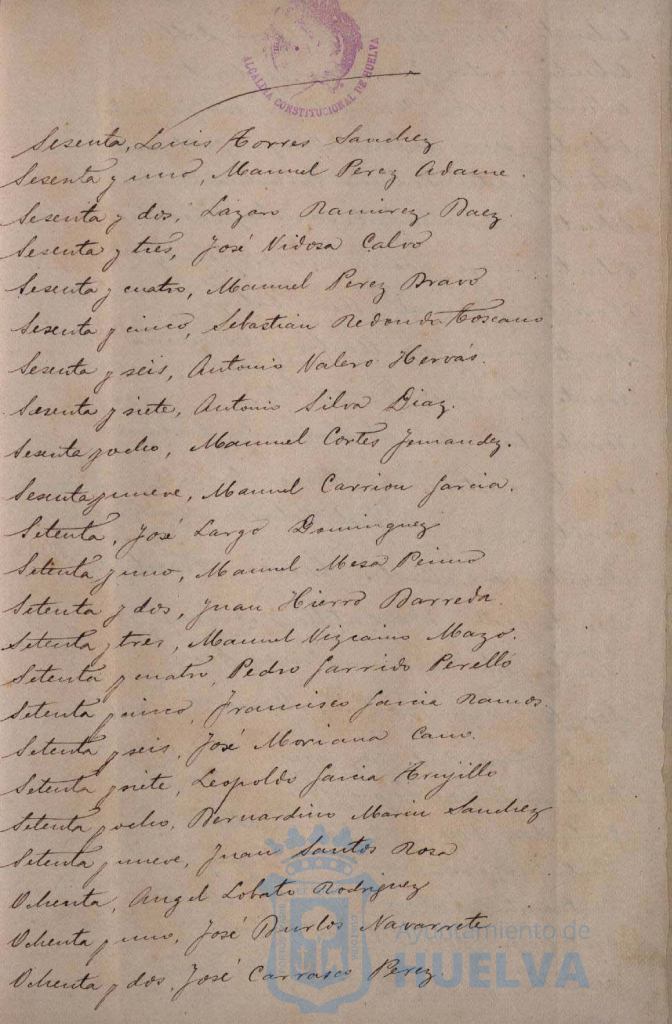 ALCALDIA CONSTITUCIONAL DE HUELVA
Sesenta, Luis Torres Sanchez
Sesenta y uno, Manuel Perez Adame.
Sesenta y dos, Lázaro Ramirez Baez.
Sesenta y tres, José Vidosa Calvo
Sesenta y cuatro, Manuel Perez Bravo
Sesenta y cinco, Sebastian Redondo Toscano
Sesenta y seis, Antonio Valero Hervás.
Sesenta y siete, Antonio Silva Diaz.
Sesenta y ocho, Manuel Cortés Fernandez.
Sesenta y nueve, Manuel Carrion Garcia.
Setenta, José Largo Dominguez
Setenta y uno, Manuel Mesa
Setenta y dos, Juan Hierro Barreda.
Setenta y tres, Manuel Vizcaino Mazo.
Setenta y cuatro, Pedro Garrido Perelló
Setenta y cinco, Francisco Garcia Ramos.
Setenta y seis, José Moriana Cano.
Setenta y siete, Leopoldo Garcia Trujillo
Setenta y ocho, Bernardino Marin Sanchez
Setenta y nueve, Juan Santos Rosa
Ochenta, Angel Lobato Rodriguez
Ochenta y uno, José Burlos Navarrete
Ochenta y dos, José Carrasco Perez.
Ayuntamiento de
HUELVA